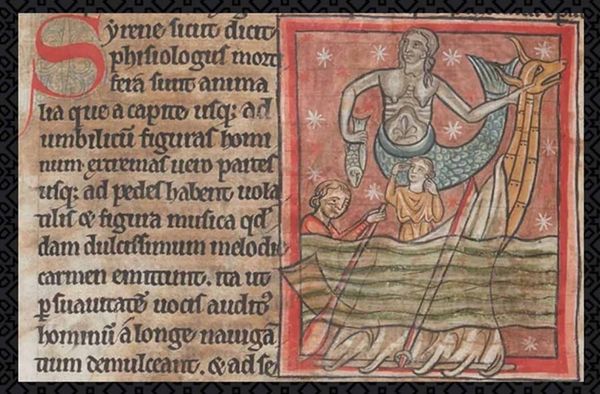 Syrene sicut dicit
phisiologus mort
fera sunt anima
lia que a capite usq; ad
umbilicū figuras homi
num. extremas uero partes
usq; ad pedes habent uola
tilis & figura musica qd̄
dam dulcissimum melodie
carmen emittunt. ita ut
ꝑ suauitatē uocis auditꝰ
hominū a longe nauigā
tium demulceant. & ad se